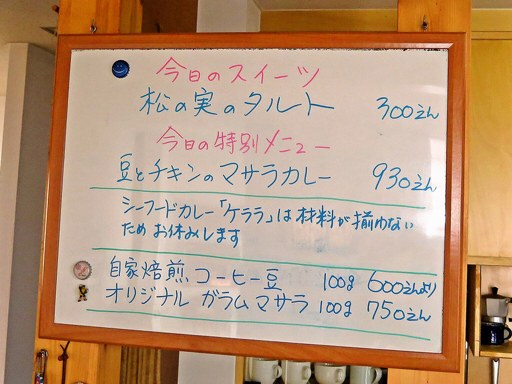 今日のスイーツ
松の実のタルト 300えん
今日の特別メニュー
豆とチキンのマサラカレー 930えん
シーフードカレー「ケララ」は材料が揃わない
ためお休みします
自家焙煎コーヒー豆 100g 600えんより
オリジナル ガラムマサラ 100g 750えん